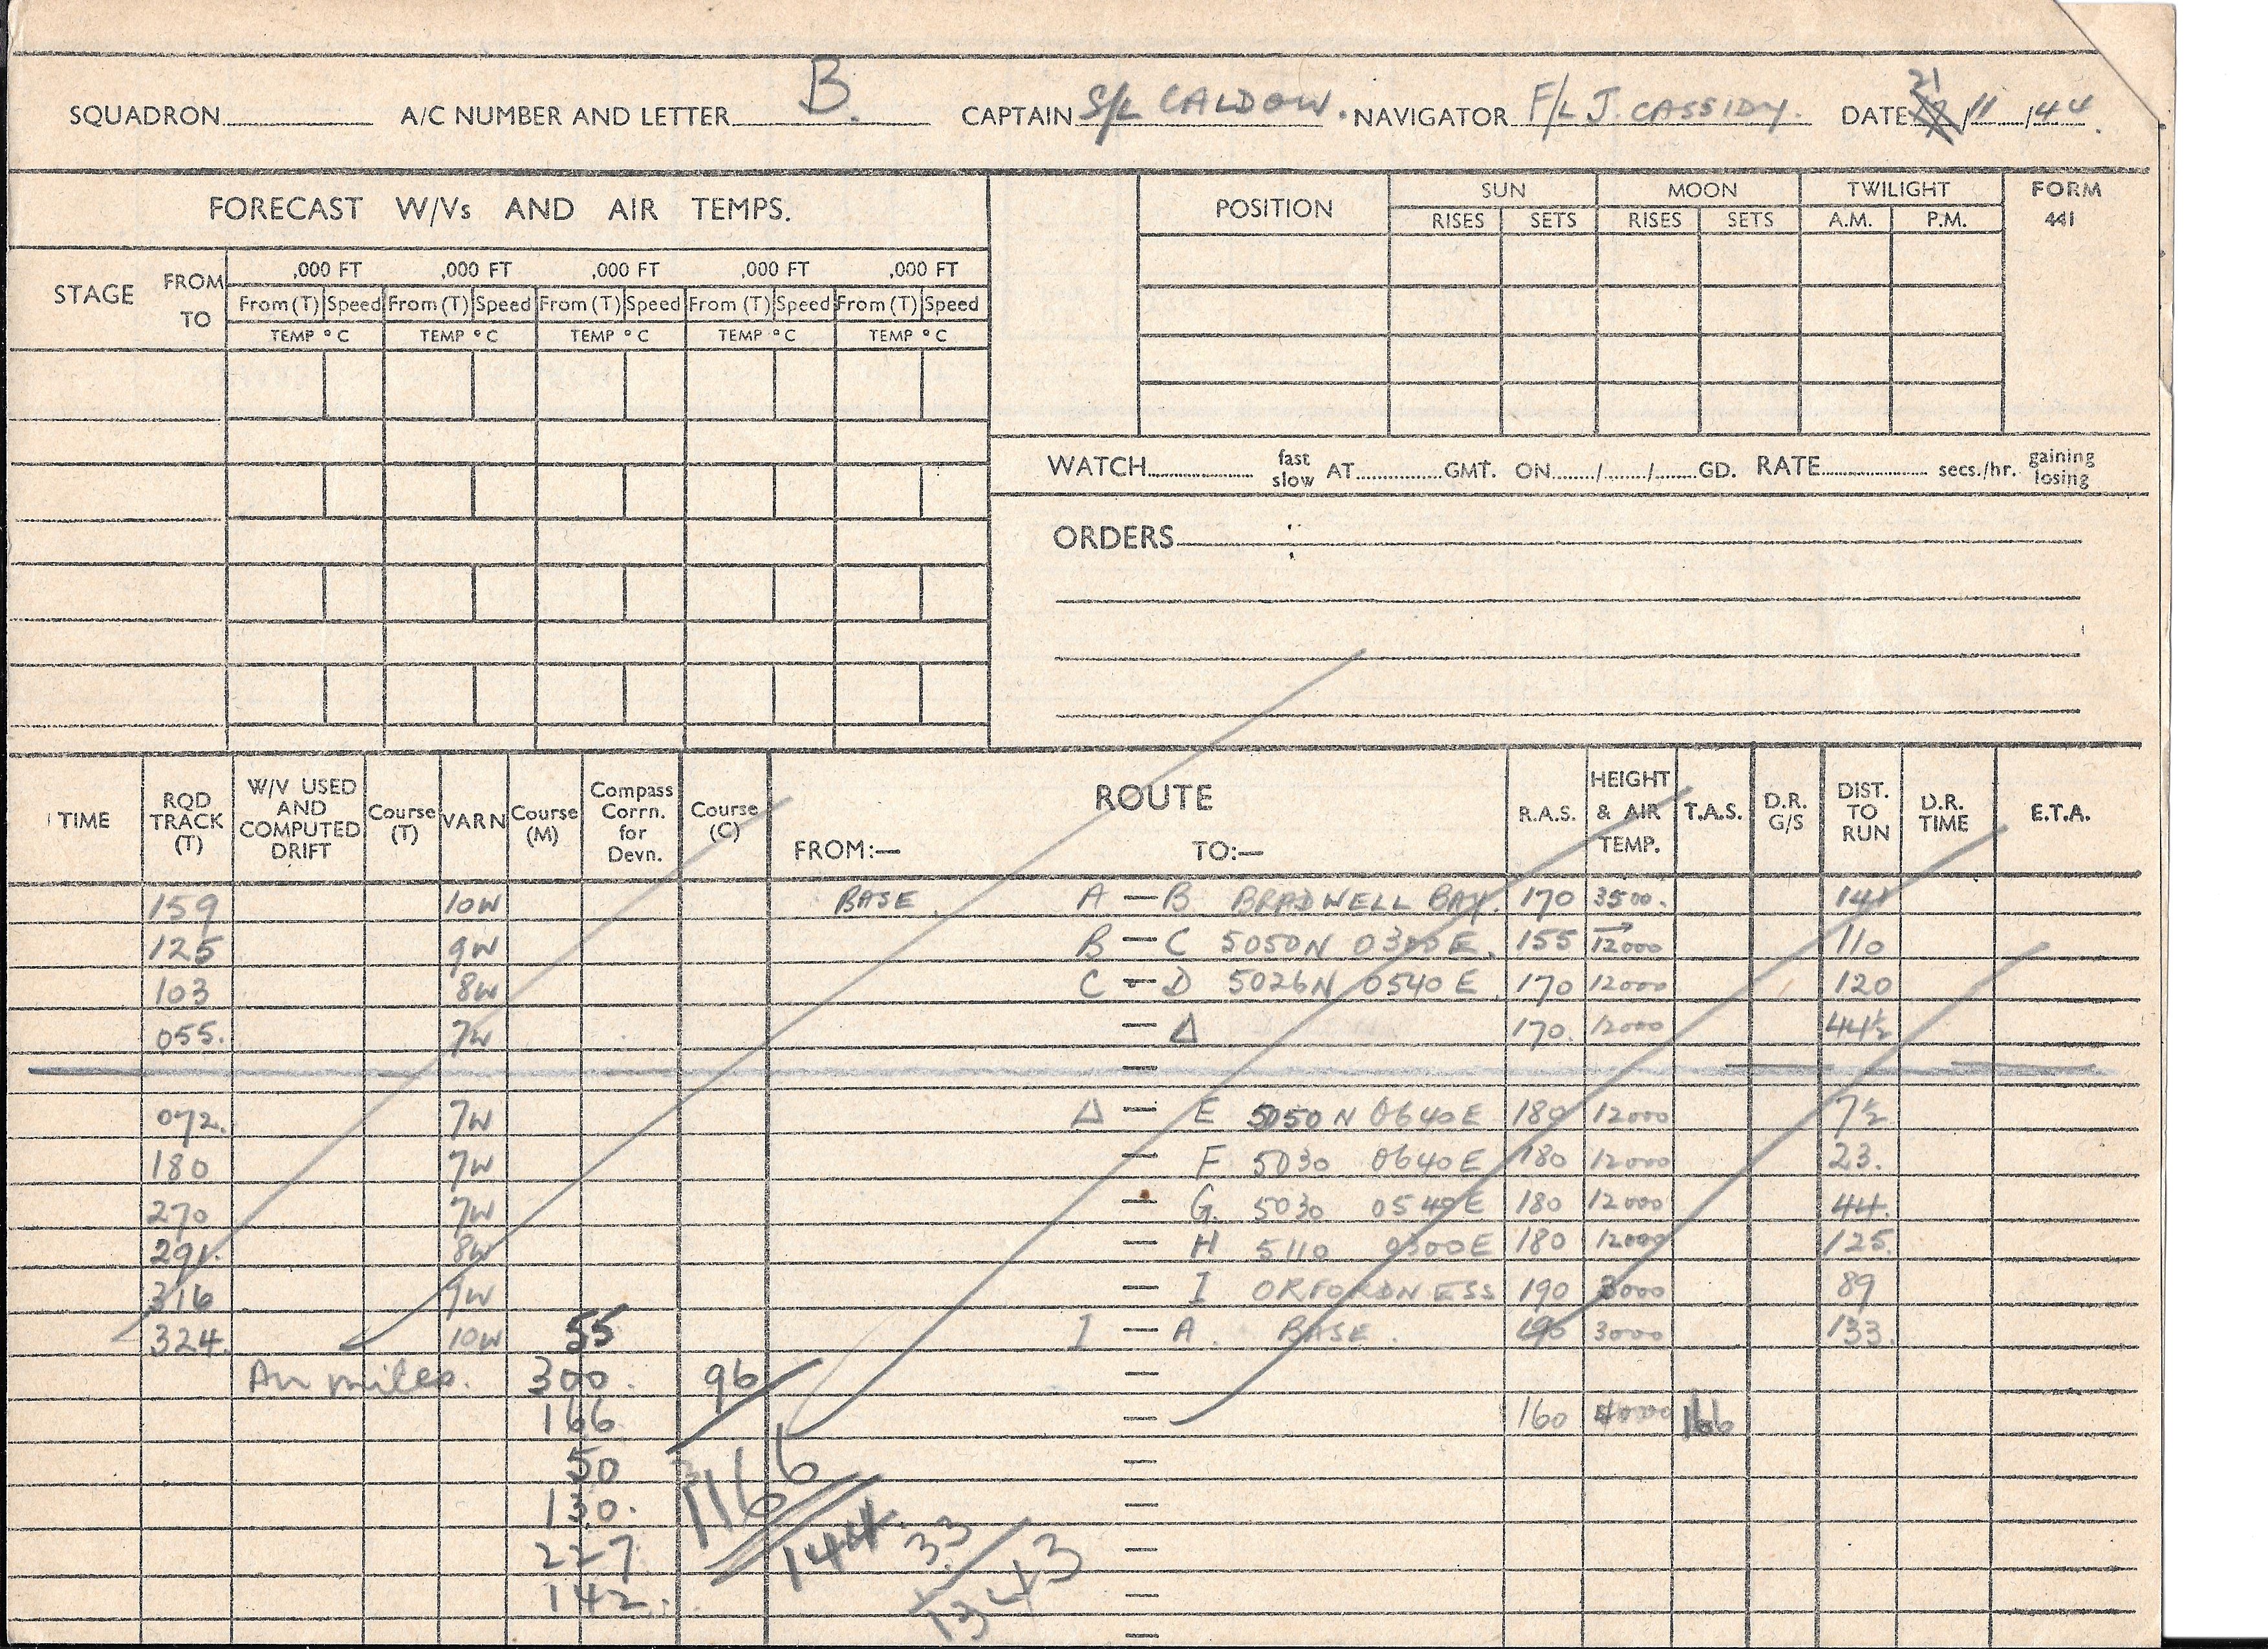 SQUADRON A/C NUMBER AND LETTER B. CAPTAIN S/L CALDOW. NAVIGATOR F/L J. CASSIDY. DATE 21/11/44.
FORECAST W/Vs AND AIR TEMPS.
POSITION SUN MOON TWILIGHT FORM 441
RISES SETS RISES SETS A.M. P.M.
STAGE FROM TO
,000 FT ,000 FT ,000 FT ,000 FT ,000 FT
From (T) Speed From (T) Speed From (T) Speed From (T) Speed From (T) Speed
TEMP °C TEMP °C TEMP °C TEMP °C TEMP °C
WATCH fast slow AT GMT. ON / / GD. RATE secs./hr. gaining losing
ORDERS
TIME RQD TRACK (T) W/V USED AND COMPUTED DRIFT Course (T) VARN Course (M) Compass Corrn. for Devn. Course (C) ROUTE FROM:— TO:— R.A.S. HEIGHT & AIR TEMP. T.A.S. D.R. G/S DIST. TO RUN D.R. TIME E.T.A.
159 10W BASE. A — B BRADWELL BAY. 170 3500. 141
125 9W B — C 5050N 0300E. 155 12000 110
103 8W C — D 5026N 0540E. 170 12000 120
055. 7W — Δ 170. 12000 44½
—
072. 7W Δ — E 5050N 0640E 180 12000 7½
180 7W — F 5030 0640E 180 12000 23.
270 7W G. 5030 0540E 180 12000 44.
291. 8W — H 5110 0300E 180 12000 125.
316 9W — I ORFORDNESS 190 3000 89
324. 10W 55 I — A. BASE. 190 3000 133.
Air miles. 300. 96
166 — 160 4000 166
50 1166 —
130. —
227 144 33 —
142. 1343 —
—